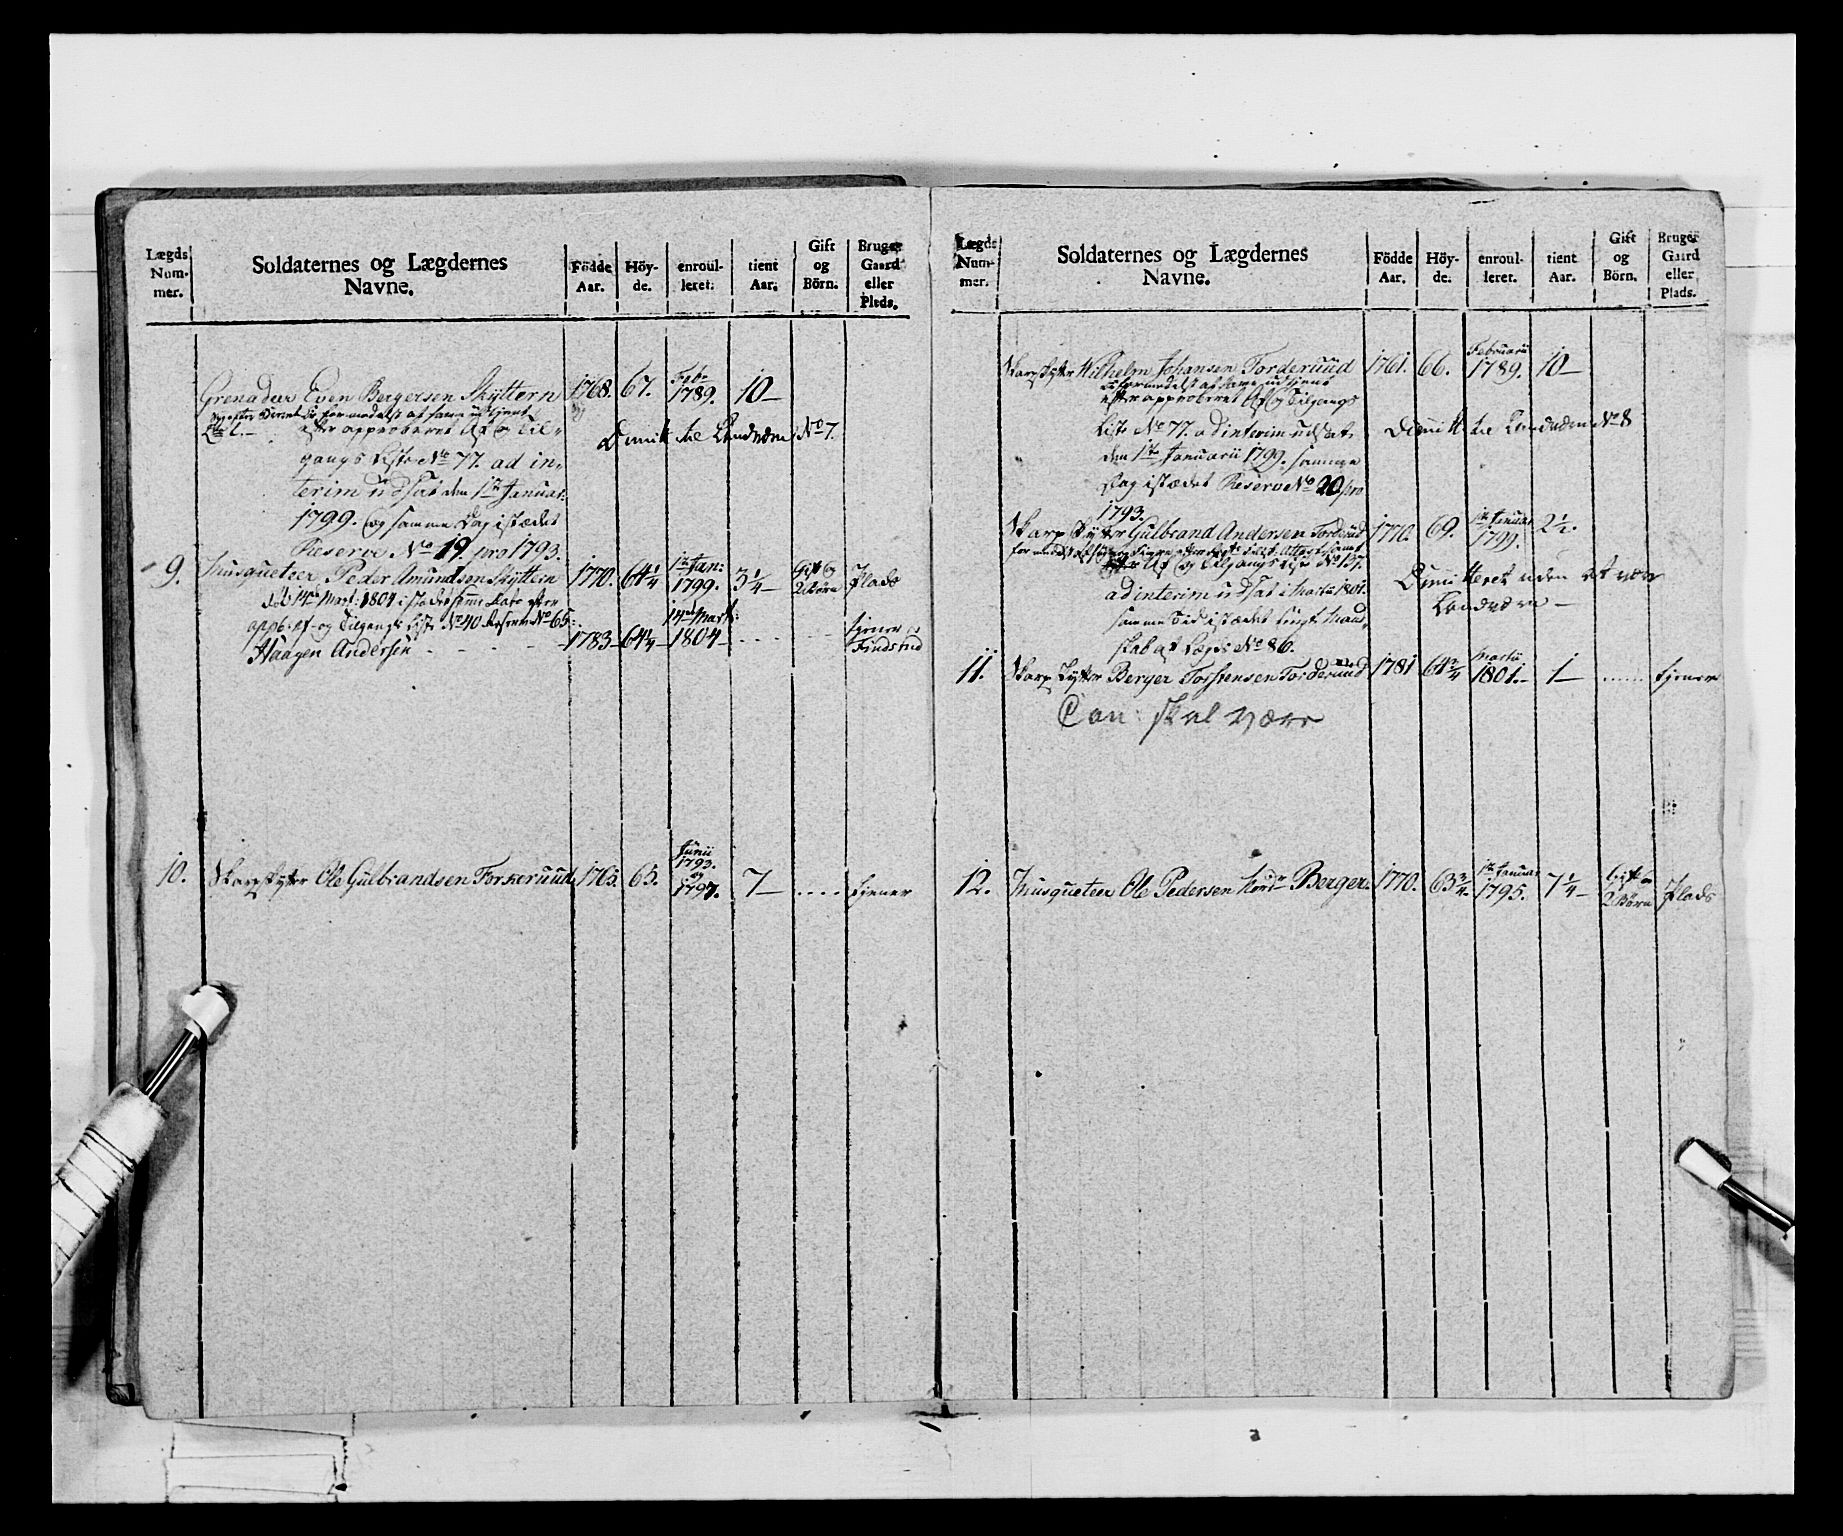 Lægds Num-mer.
Soldaternes og Lægdernes Navne.
Födde Aar.
Höy-de.
enroul-leret.
tient Aar.
Gift og Börn.
Bruger Gaard eller Plads.
Grenadeer Even Bergersen Skÿttern 1768. 67. Febr 1789. 10 —
efter approberet Af og Til-
gangs Liste No 77. ad in-
terim udsat den 1ste Januar:
1799. og samme Dag istædet
Reserve No 19. pro 1793.
Dimitt til Landværn No 7.
9. Musqueteer Peder Amundsen Skÿttern 1770. 64 1/4 1te Jan: 1799. 3 1/4 — Gift og 2 Börn Plads
död 14de Mart: 1804 istædet samme Dato efter
app6. Af- og Tilgangs Liste No 40 Reserve No 65:
Haagen Andersen - - - - 1783 - 64 1/4 14de Marti: 1804 - - - - tiener
Findstad
10. Skarpskytter Ole Gulbrandsen Forkeruud 1765. 65. Junii 1793. og 1797. 7 — . . . . tiener
Lægds Num-mer.
Soldaternes og Lægdernes Navne.
Födde Aar.
Höy-de.
enroul-leret.
tient Aar.
Gift og Börn.
Bruger Gaard eller Plads.
Skarpskytter Wilhelm Johansen Torderuud 1761. 66. Februarii 1789. 10 —
efter approberet Af og Tilgangs
Liste No 77. ad interim udsat
den 1ste Januarii 1799. samme
Dag istædet Reserve No 20 pro
1793.
Dimitt til Landværn No 8
Skarpskytter Gulbrand Andersen Torderud 1770. 69. 1te Januar 1799. 2 1/2.
efter Af og Tilgangs Liste No 137.
ad interim udsat i Martii 1801.
samme Tid istædet
skab af Lægd No 86.
Dimitteret uden at være
Landværn —
11. Skarpskytter Berger Torstensen Torderuud 1781 64 3/4 Martii 1801. — 1 — . . . . . . tiener
Can: skal være
12. Musqueteer Ole Pedersen Nordr Berger. 1770. 63 3/4. 1te Januar 1795. 7 1/4 — Gift og 2 Börn Plads